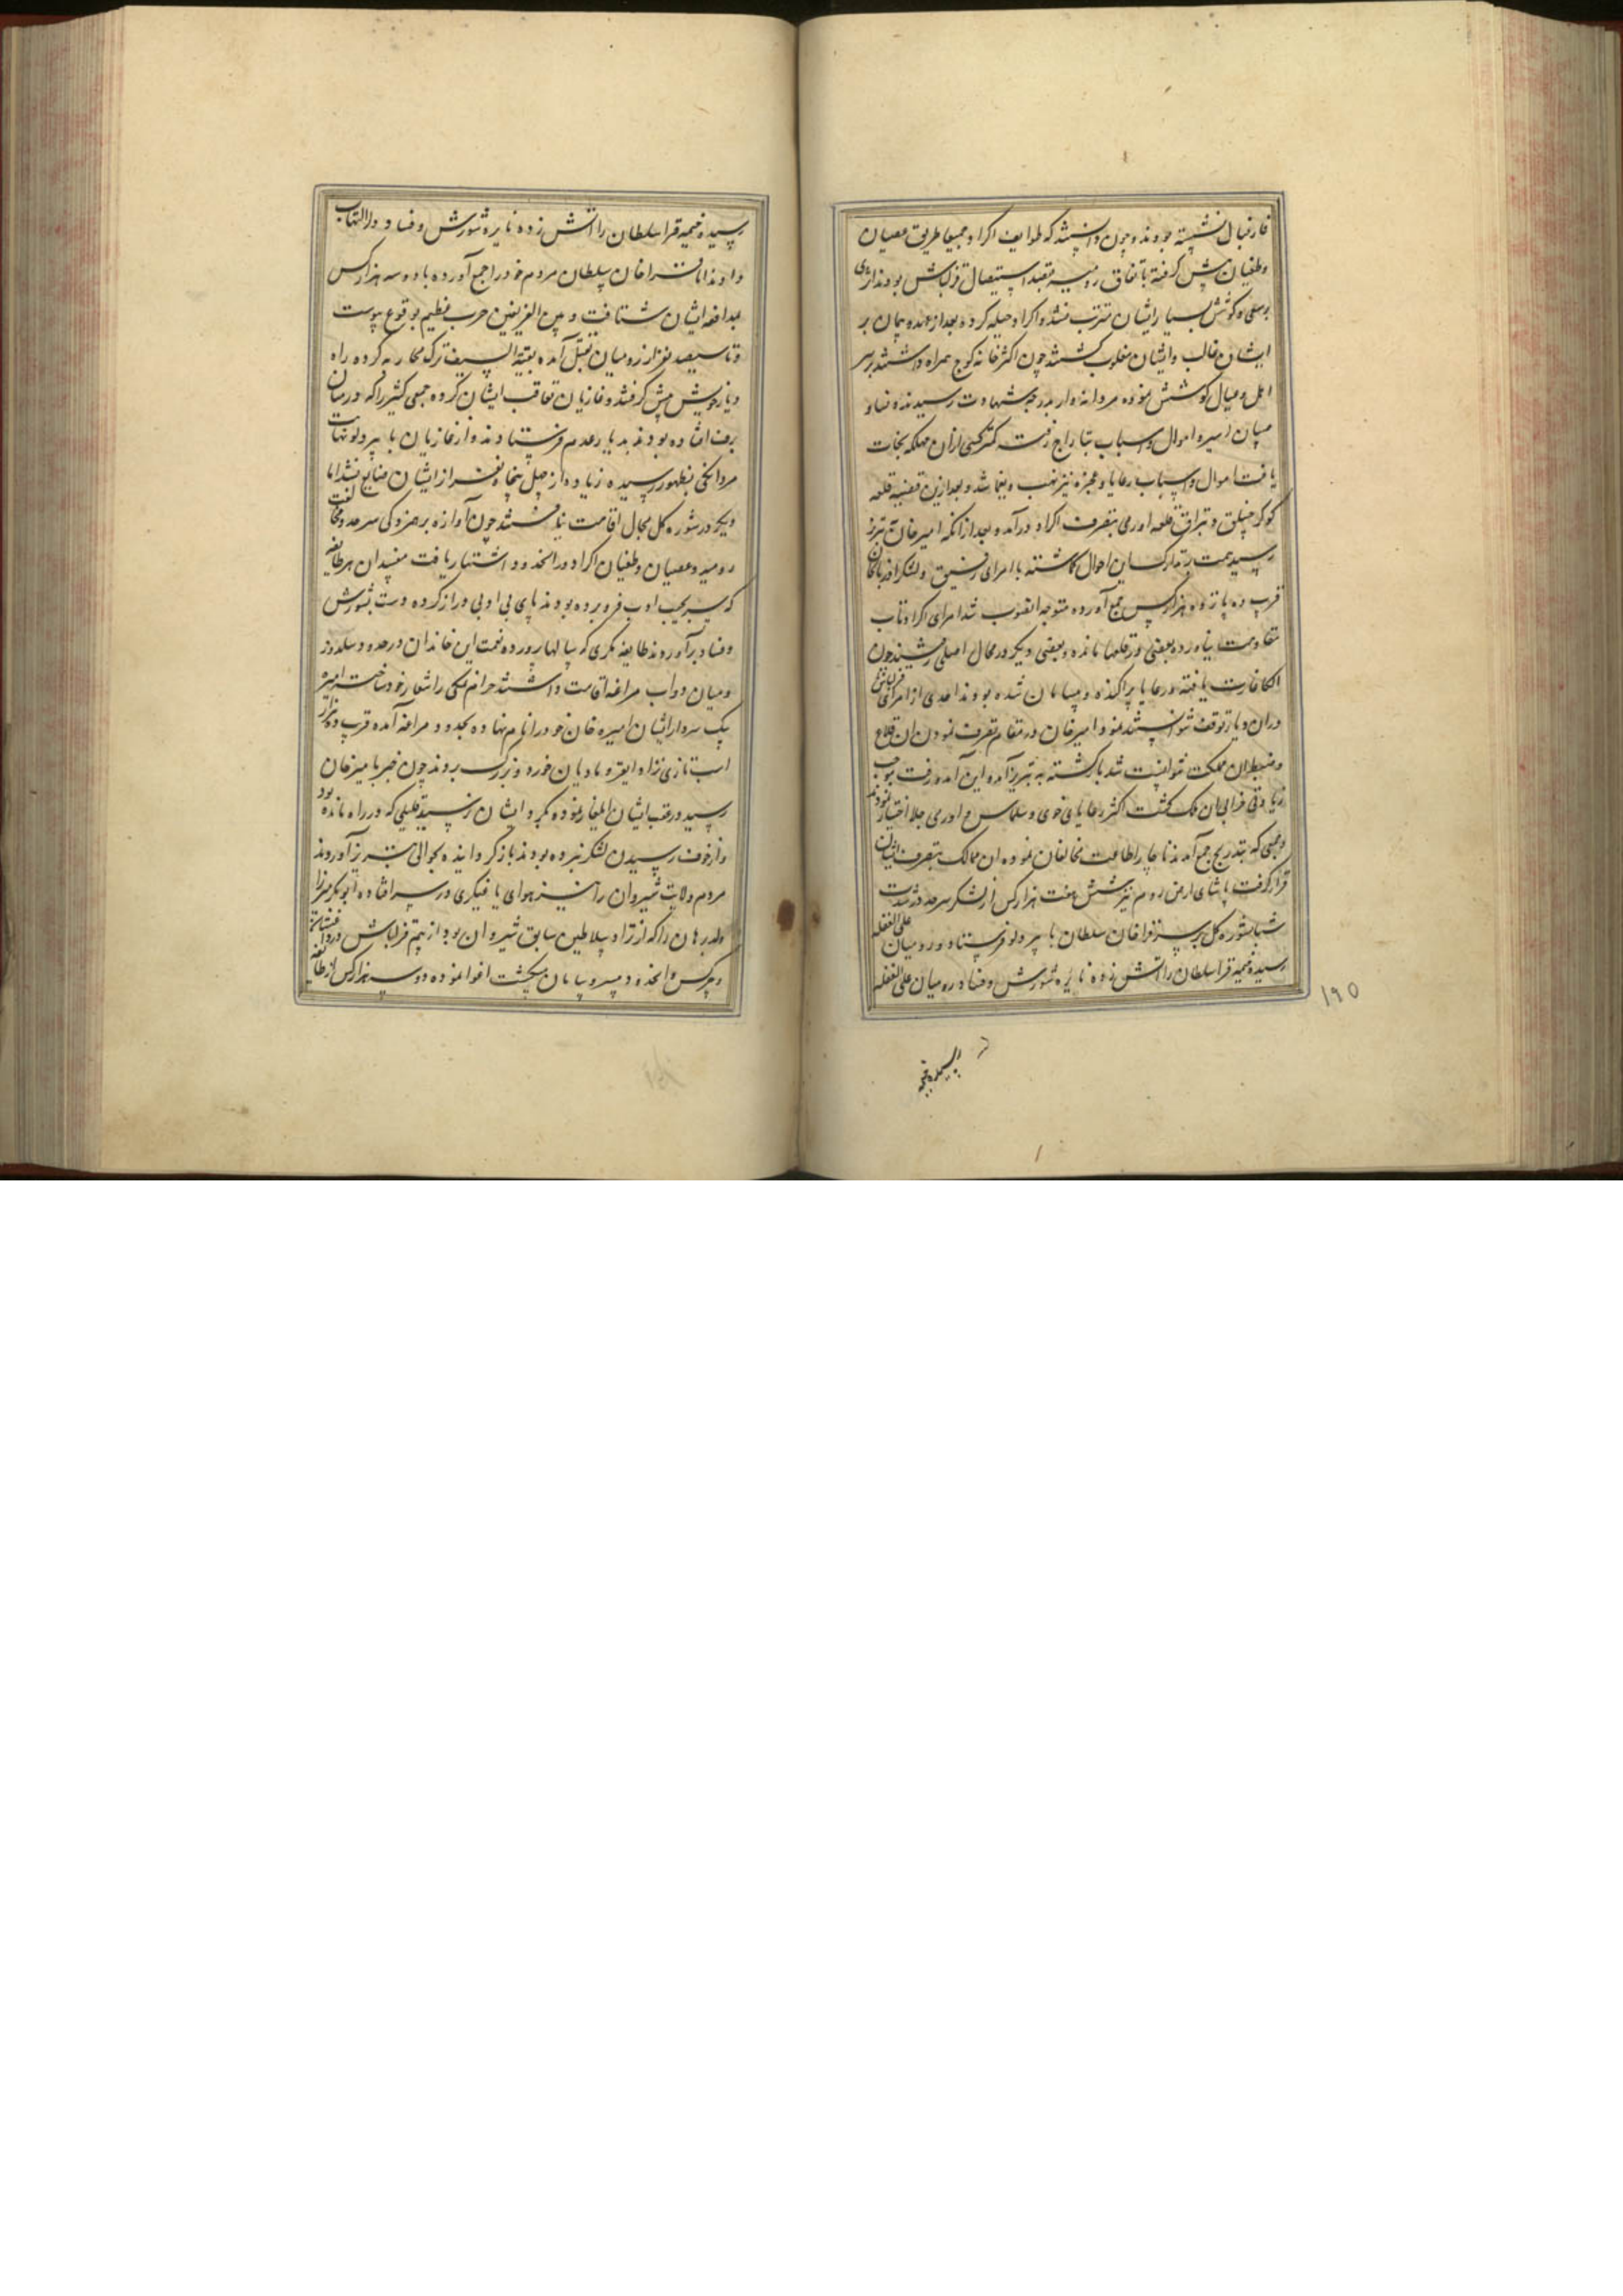 فارغبال نشسته بودند و چون دانستند که طوایف اکراد جمیعا طریق عصیان
و طغیان پیش گرفته باتفاق رومیه بقصد استیصال قزلباش بودند اثری
بر سعی و کوشش بسیار ایشان مترتب نشد و اکراد حیله کرده بعد از عهد و پیمان بر
ایشان غالب و ایشان مغلوب گشتند چون اکثر خانه کوچ همراه داشتند بر سر
اهل و عیال کوشش نموده مردانه وار بدرجه شهادت رسیدند و نساء و
صبیان اسیر و اموال و اسباب بتاراج رفت کمتر کسی از ان مهلکه نجات
یافت اموال و اسباب رعایا و عجزه نیز نهب و یغما شد و بعد ازین قضیه قلعه
کوکرچینلق و قلعه اورمی بتصرف اکراد درآمد و بعد از انکه امیر خان بتبریز
رسید همت بتدارک این احوال گماشته با امرای رفیق و لشکر اذربایجان
قریب ده پانزده هزار کس جمع آورده متوجه انصوب شد امرای اکراد تاب
مقاومت نیاورده بعضی در قلعها مانده و بعضی دیگر در محال اصلی رفتند چون
الکا غارت یافته و رعایا پراکنده و بی سامان شده بودند احدی از امرای قزلباش
در ان دیار توقف نتوانستند نمود و امیر خان در مقام تصرف نمودن ان قلاع
و ضبط ان مملکت نتوانست شد بازگشته به تبریز آمد و این آمد و رفت موجب
زیادتی خرابی ان ملک گشت اکثر رعایای خوی و سلماس و اورمی جلا اختیار نمودند
و جمعی که بتدریج جمع آمدند ناچار اطاعت مخالفان نموده ان ممالک بتصرف ایشان
قرار گرفت پاشای ارض روم نیز شش هفت هزار کس از لشکر سرحد در شدت
شتا بشوره گل بر سر قراخان سلطان بایبردلو فرستاد و رومیان علی الغفله
رسیده خیمه قرا سلطان را آتش زده نایره شورش و فساد رومیان علی الغفله
۱۹۵
رسیده خیمه
رسیده خیمه قرا سلطان را آتش زده نایره شورش و فساد در التهاب
دادند اما قراخان سلطان مردم خود را جمع آورده با دو سه هزار کس
بمدافعه ایشان شتافت و بین الفریقین حرب عظیم بوقوع پیوست
و تا سیصد نفر از رومیان بقتل آمده بقیة السیف ترک محاربه کرده راه
دیار خویش پیش گرفتند و غازیان تعاقب ایشان کرده جمعی کثیر را که در میان
برف افتاده بودند بدیار عدم فرستادند و از غازیان بایبردلو نهایت
مردانگی بظهور رسیده زیاده از چهل پنجاه نفر از ایشان ضایع نشد اما
دیگر در شوره گل مجال اقامت نیافتند چون آوازه هرزگی سرحد و مخالفت
رومیه و عصیان و طغیان اکراد در انحدود اشتهار یافت مفسدان هر طایفه
که سر بجیب ادب فرو برده بودند پای بی ادبی دراز کرده دست بشورش
و فساد برآوردند طایفه مکری که سالها پرورده نعمت این خاندان در حدود سلدوز
و میان دواب مراغه اقامت داشتند حرام نمکی را شعار خود ساخت امیره
بیک سردار ایشان امیره خان خود را نام نهاده بحدود مراغه آمده قریب ده هزار
اسب تازی نژاد ایغر و مادیان خورد و بزرگ بردند چون خبر بامیر خان
رسید در عقب ایشان ایلغار نموده بگرد ایشان نرسید قلیلی که در راه مانده بود
و از خوف رسیدن لشکر نبرده بودند بازگردانیده بحوالی تبریز آوردند
مردم ولایت شیروان را نیز هوای یاغیگری در سر افتاده ابوبکر میرزا
ولد برهان را که از نژاد سلاطین سابق شیروان بود از بیم قزلباش در داغستان
و چرکس و انحدود بی سر و سامان میگشت اغوا نموده دو سه هزار کس از طایفه